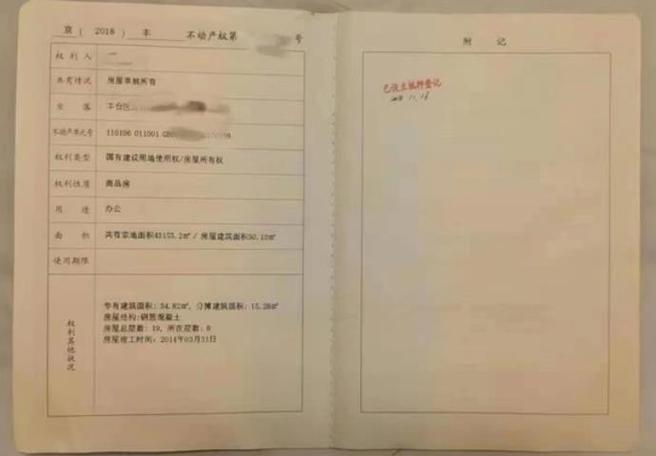 京（2018）丰 不动产权第 号
权利人
共有情况 房屋单独所有
坐落 丰台区
不动产单元号 110106 011001
权利类型 国有建设用地使用权/房屋所有权
权利性质 商品房
用途 办公
面积 共有宗地面积43153.2㎡ / 房屋建筑面积50.10㎡
使用期限
权利其他状况
专有建筑面积：34.82㎡，分摊建筑面积：15.28㎡
房屋结构：钢筋混凝土
房屋总层数：19，所在层数：8
房屋竣工时间：2014年03月31日
附记
已设立抵押登记